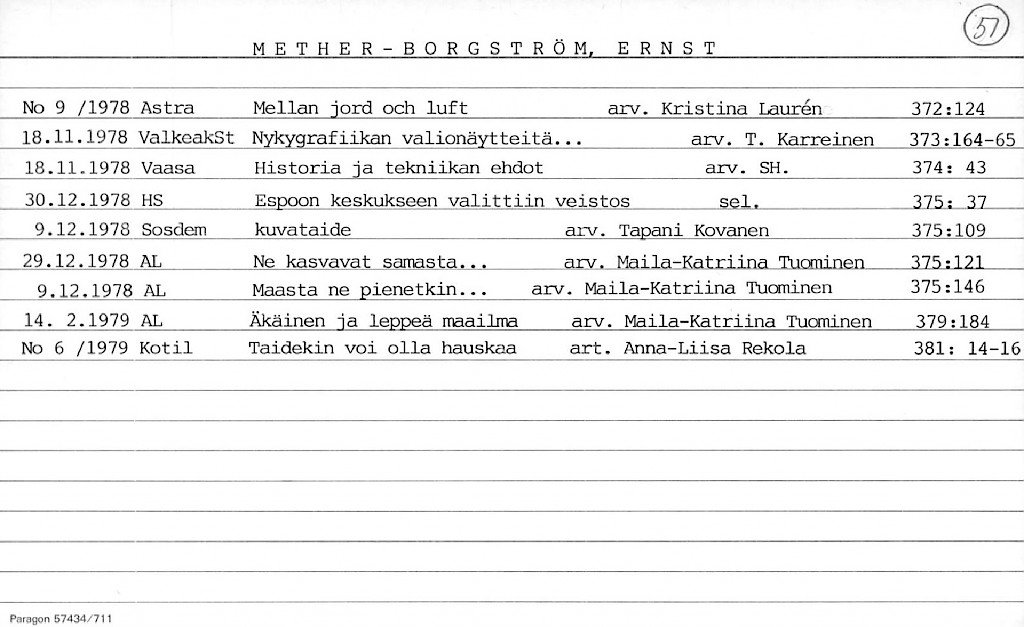 57
METHER-BORGSTRÖM, ERNST
No 9 /1978 Astra Mellan jord och luft arv. Kristina Laurén 372:124
18.11.1978 ValkeakSt Nykygrafiikan valionäytteitä... arv. T. Karreinen 373:164-65
18.11.1978 Vaasa Historia ja tekniikan ehdot arv. SH. 374: 43
30.12.1978 HS Espoon keskukseen valittiin veistos sel. 375: 37
9.12.1978 Sosdem kuvataide arv. Tapani Kovanen 375:109
29.12.1978 AL Ne kasvavat samasta... arv. Maila-Katriina Tuominen 375:121
9.12.1978 AL Maasta ne pienetkin... arv. Maila-Katriina Tuominen 375:146
14. 2.1979 AL Äkäinen ja leppeä maailma arv. Maila-Katriina Tuominen 379:184
No 6 /1979 Kotil Taidekin voi olla hauskaa art. Anna-Liisa Rekola 381: 14-16
Paragon 57434/711